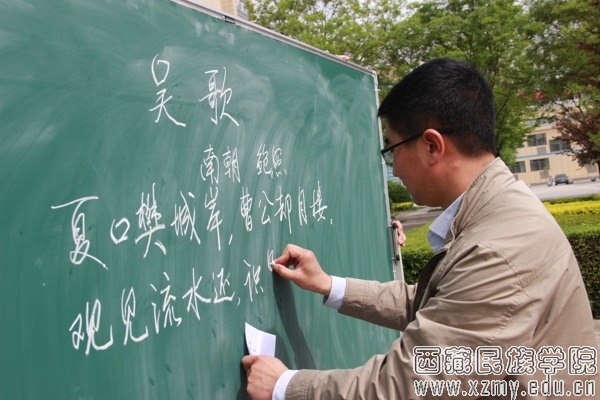 吴歌
南朝 鲍照
夏口樊城岸,曹公却月楼.
观见流水还,识
西藏民族学院
www.xzmy.edu.cn